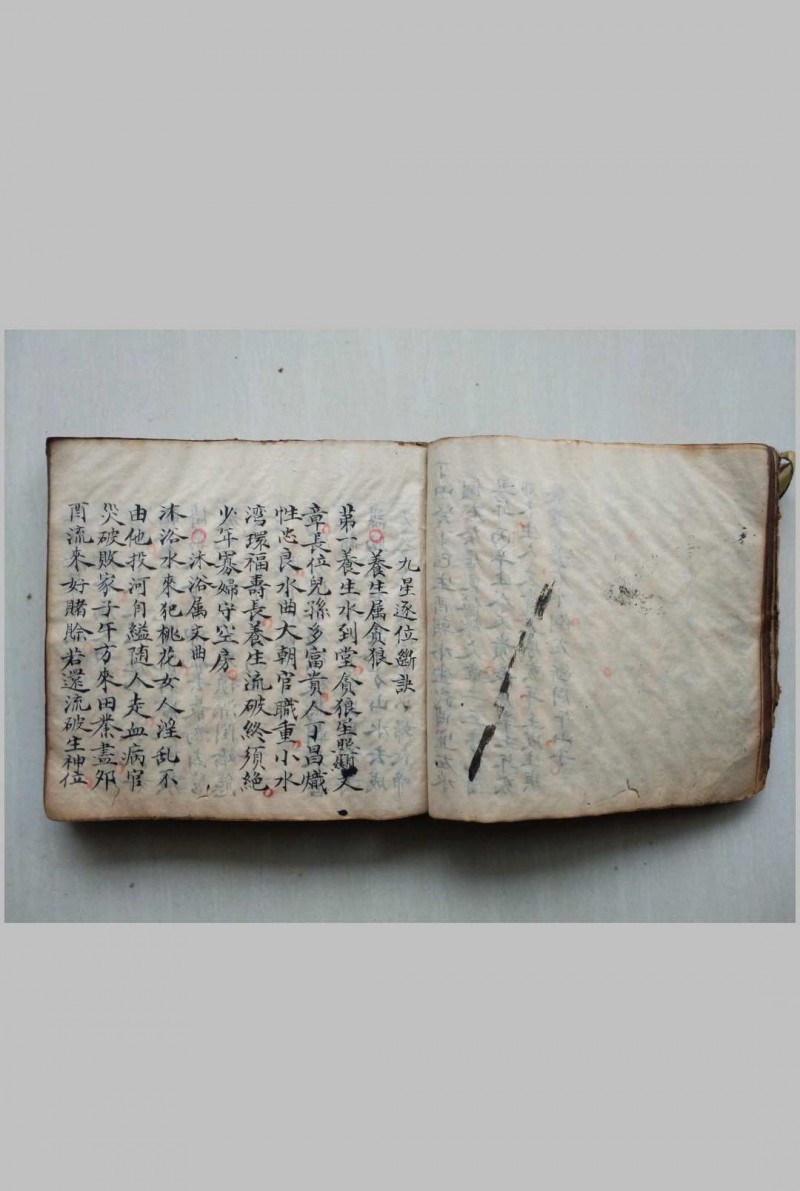 九星逐位斷訣
養生属貪狼
第一養生水到堂貪狼星照顯文
章長位兒孫多富貴人丁昌熾
性忠良水曲大朝官職重小水
湾環福壽長養生流破終須絶
少年寡婦守空房
沐浴属文曲
沐浴水來犯桃花女人淫乱不
由他投河自縊随人走血病官
災破敗家子午方來田業盡卯
酉流來好賭賒若還流破生神位